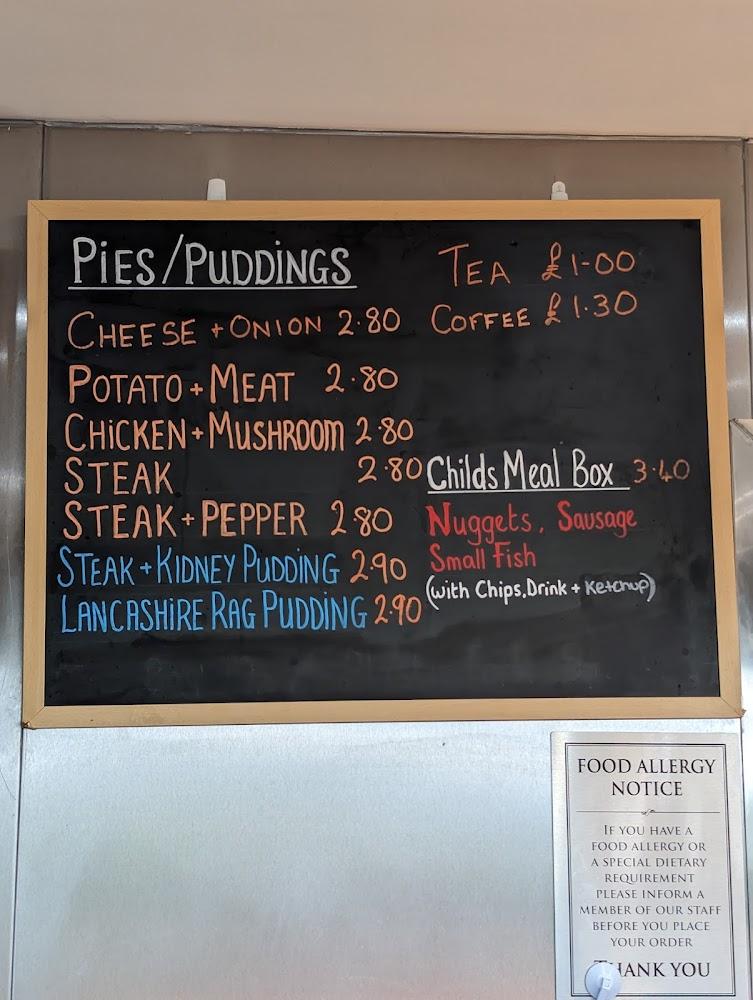 PiES/PUDDiNGS
CHEESE + ONION 2.80
POTATO + MEAT 2.80
CHiCKEN + MUSHROOM 2.80
STEAK 2.80
STEAK + PEPPER 2.80
STEAK + KIDNEY PUDDING 2.90
LANCASHIRE RAG PUDDING 2.90
TEA £1-00
COFFEE £1.30
Childs Meal Box 3.40
Nuggets, Sausage
Small Fish
(with Chips, Drink + Ketchup)
FOOD ALLERGY
NOTICE
IF YOU HAVE A
FOOD ALLERGY OR
A SPECIAL DIETARY
REQUIREMENT
PLEASE INFORM A
MEMBER OF OUR STAFF
BEFORE YOU PLACE
YOUR ORDER
THANK YOU